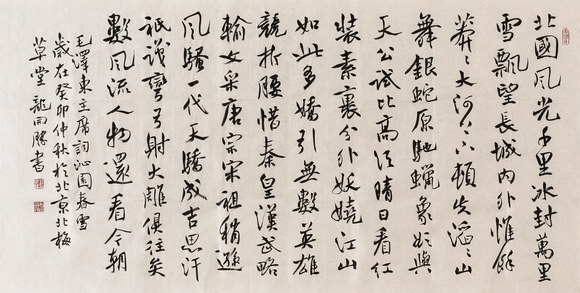 北國風光千里冰封萬里
雪飄望長城內外惟餘
莽々大河上下頓失滔々山
舞銀蛇原馳蠟象欲與
天公試比高須晴日看紅
裝素裹分外妖嬈江山
如此多嬌引無數英雄
競折腰惜秦皇漢武略
輸文采唐宗宋祖稍遜
風騷一代天驕成吉思汗
祇識彎弓射大雕俱往矣
數風流人物還看今朝
毛澤東主席詞沁園春雪
歲在癸卯仲秋於北京北梅
草堂龍開勝書